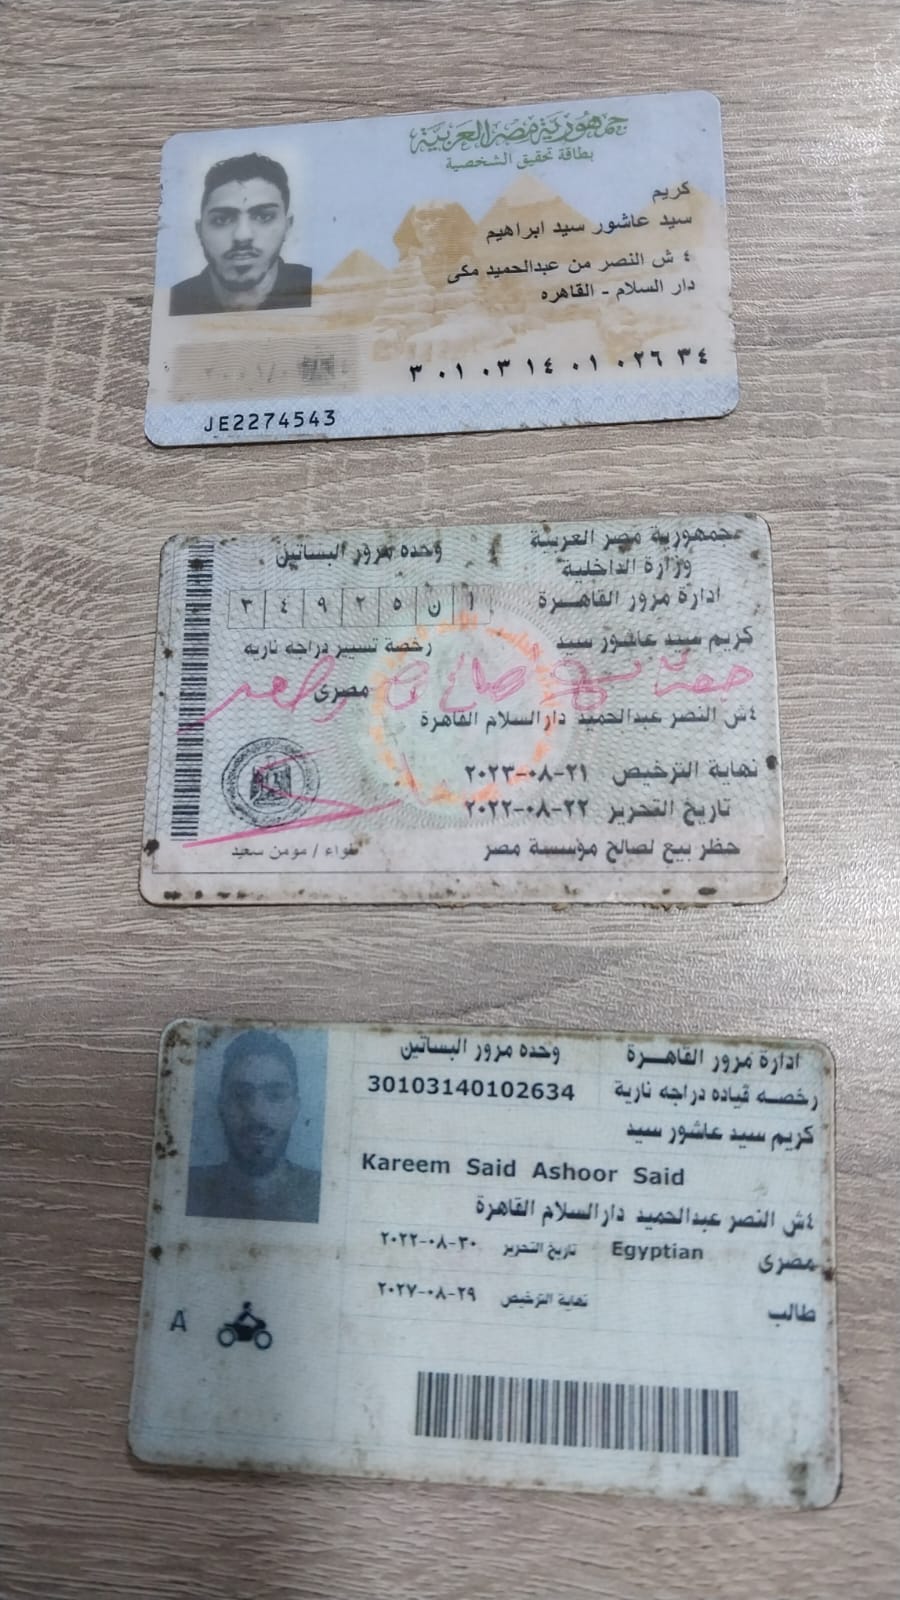 جمهورية مصر العربية
بطاقة تحقيق الشخصية
كريم
سيد عاشور سيد ابراهيم
٤ ش النصر من عبدالحميد مكى
دار السلام - القاهره
٣ ٠١ ٠٣ ١٤ ٠١ ٠٢٦ ٣٤
JE2274543
جمهورية مصر العربية
وحده مرور البساتين
وزارة الداخلية
ادارة مرور القاهرة
٣ ٤ ٩ ٢ ٥ ن ا
كريم سيد عاشور سيد
رخصة تسيير دراجه ناريه
مصرى
٤ش النصر عبدالحميد دارالسلام القاهرة
نهاية الترخيص ٢٠٢٣-٠٨-٢١
تاريخ التحرير ٢٠٢٢-٠٨-٢٢
حظر بيع لصالح مؤسسة مصر
لواء / مومن سعيد
ادارة مرور القاهرة
وحده مرور البساتين
رخصه قياده دراجه نارية
30103140102634
كريم سيد عاشور سيد
Kareem Said Ashoor Said
٤ش النصر عبدالحميد دارالسلام القاهرة
مصرى Egyptian تاريخ التحرير ٢٠٢٢-٠٨-٣٠
طالب نهاية الترخيص ٢٠٢٧-٠٨-٢٩
A